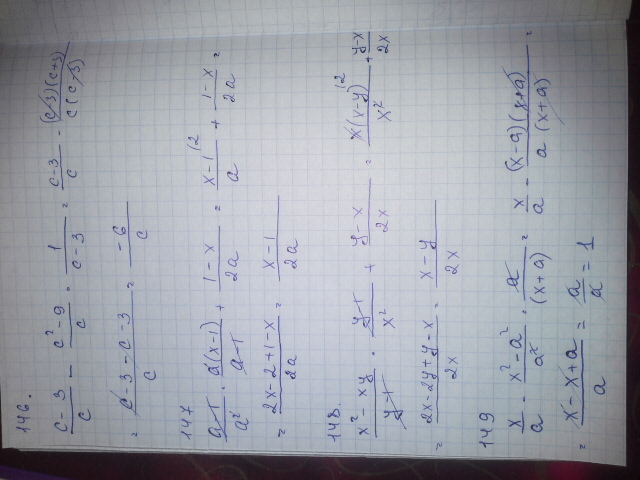 146.
c-3/c - c²-9/c : 1/c-3 = c-3/c - (c-3)(c+3)/c(c-3)
= c-3-c-3/c = -6/c
147
a-1/a² · a(x-1)/a-1 + 1-x/2a = x-1/a |2 + 1-x/2a =
= 2x-2+1-x/2a = x-1/2a
148.
x²-xy/y-1 · y-1/x² + y-x/2x = x(x-y)/x² |2 + y-x/2x
= 2x-2y+y-x/2x = x-y/2x
149
x/a - x²-a²/a² · a/(x+a) = x/a - (x-a)(x+a)/a(x+a) =
= x-x+a/a = a/a = 1